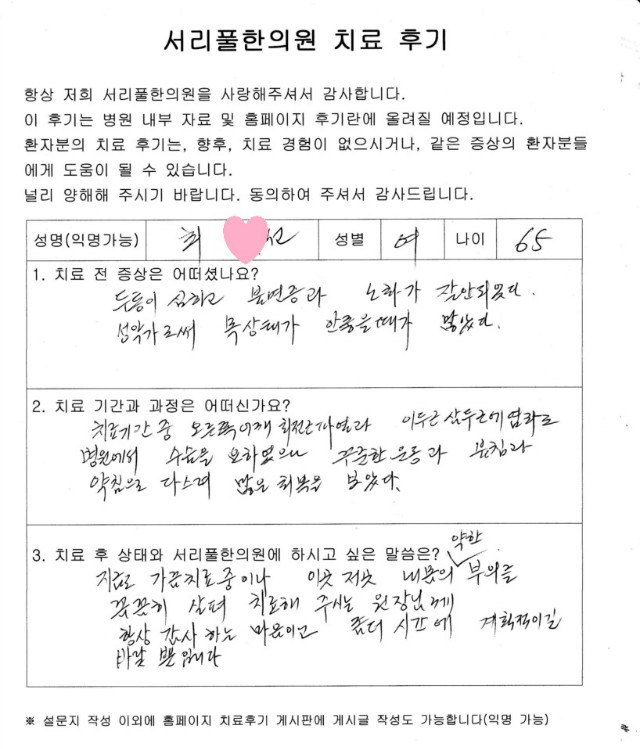 서리풀한의원 치료 후기
항상 저희 서리풀한의원을 사랑해주셔서 감사합니다.
이 후기는 병원 내부 자료 및 홈페이지 후기란에 올려질 예정입니다.
환자분의 치료 후기는, 향후, 치료 경험이 없으시거나, 같은 증상의 환자분들
에게 도움이 될 수 있습니다.
널리 양해해 주시기 바랍니다. 동의하여 주셔서 감사드립니다.
성명(익명가능) 최 성별 여 나이 65
1. 치료 전 증상은 어떠셨나요?
두통이 심하고 불면증과 소화가 잘안되었다.
성악가로써 목상태가 안좋을때가 많았다.
2. 치료 기간과 과정은 어떠신가요?
치료기간중 오른쪽어깨 회전근파열과 이두근 삼두근에 염좌로
병원에서 수술을 요하였으나 꾸준한 운동과 봉침과
약침으로 다스려 많은 회복을 보았다.
3. 치료 후 상태와 서리풀한의원에 하시고 싶은 말씀은? 약한
지금도 가끔치료중이나 이곳 저곳 내몸의 부위를
꼼꼼히 살펴 치료해 주시는 원장님께
항상 감사 하는 마음이고 좀더 시간에 계획적이길
바랄 뿐입니다
※ 설문지 작성 이외에 홈페이지 치료후기 게시판에 게시글 작성도 가능합니다(익명 가능)